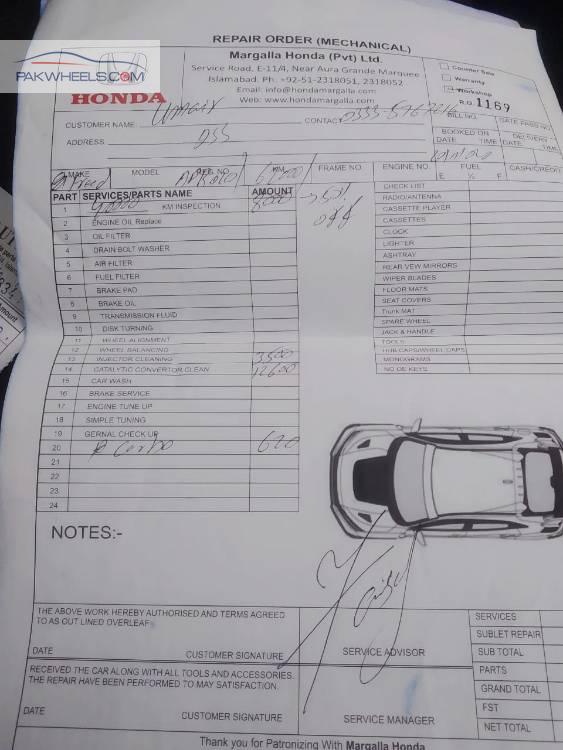 PAKWHEELS.COM
REPAIR ORDER (MECHANICAL)
HONDA
Margalla Honda (Pvt) Ltd.
Service Road, E-11/4, Near Aura Grande Marquee
Islamabad. Ph: +92-51-2318051, 2318052
Email: info@hondamargalla.com
Web: www.hondamargalla.com
Counter Sale
Warranty
Workshop
R.O. 1169
CUSTOMER NAME:
CONTACT:
ADDRESS
BILL NO.
GATE PASS NO.
BOOKED ON
DATE TIME
DELIVERY
DATE TIME
MAKE MODEL REG. NO. KM FRAME NO. ENGINE NO. FUEL CASH/CREDIT
E ½ F
PART SERVICES/PARTS NAME AMOUNT
1 KM INSPECTION 8000
2 ENGINE OIL Replace
3 OIL FILTER
4 DRAIN BOLT WASHER
5 AIR FILTER
6 FUEL FILTER
7 BRAKE PAD
8 BRAKE OIL
9 TRANSMISSION FLUID
10 DISK TURNING
11 WHEEL ALIGNMENT
12 WHEEL BALANCING
13 INJECTOR CLEANING 3500
14 CATALYTIC CONVERTOR CLEAN 12600
15 CAR WASH
16 BRAKE SERVICE
17 ENGINE TUNE UP
18 SIMPLE TUNING
19 GERNAL CHECK UP
20 620
21
22
23
24
CHECK LIST
RADIO/ANTENNA
CASSETTE PLAYER
CASSETTES
CLOCK
LIGHTER
ASHTRAY
REAR VEW MIRRORS
WIPER BLADES
FLOOR MATS
SEAT COVERS
Trunk MAT
SPARE WHEEL
JACK & HANDLE
TOOLS
HUB CAPS/WHEEL CAPS
MONOGRAMS
NO OF KEYS
NOTES:-
THE ABOVE WORK HEREBY AUTHORISED AND TERMS AGREED
TO AS OUT LINED OVERLEAF
DATE CUSTOMER SIGNATURE SERVICE ADVISOR
RECEIVED THE CAR ALONG WITH ALL TOOLS AND ACCESSORIES.
THE REPAIR HAVE BEEN PERFORMED TO MAY SATISFACTION.
DATE CUSTOMER SIGNATURE SERVICE MANAGER
SERVICES
SUBLET REPAIR
SUB TOTAL
PARTS
GRAND TOTAL
FST
NET TOTAL
Thank you for Patronizing With Margalla Honda